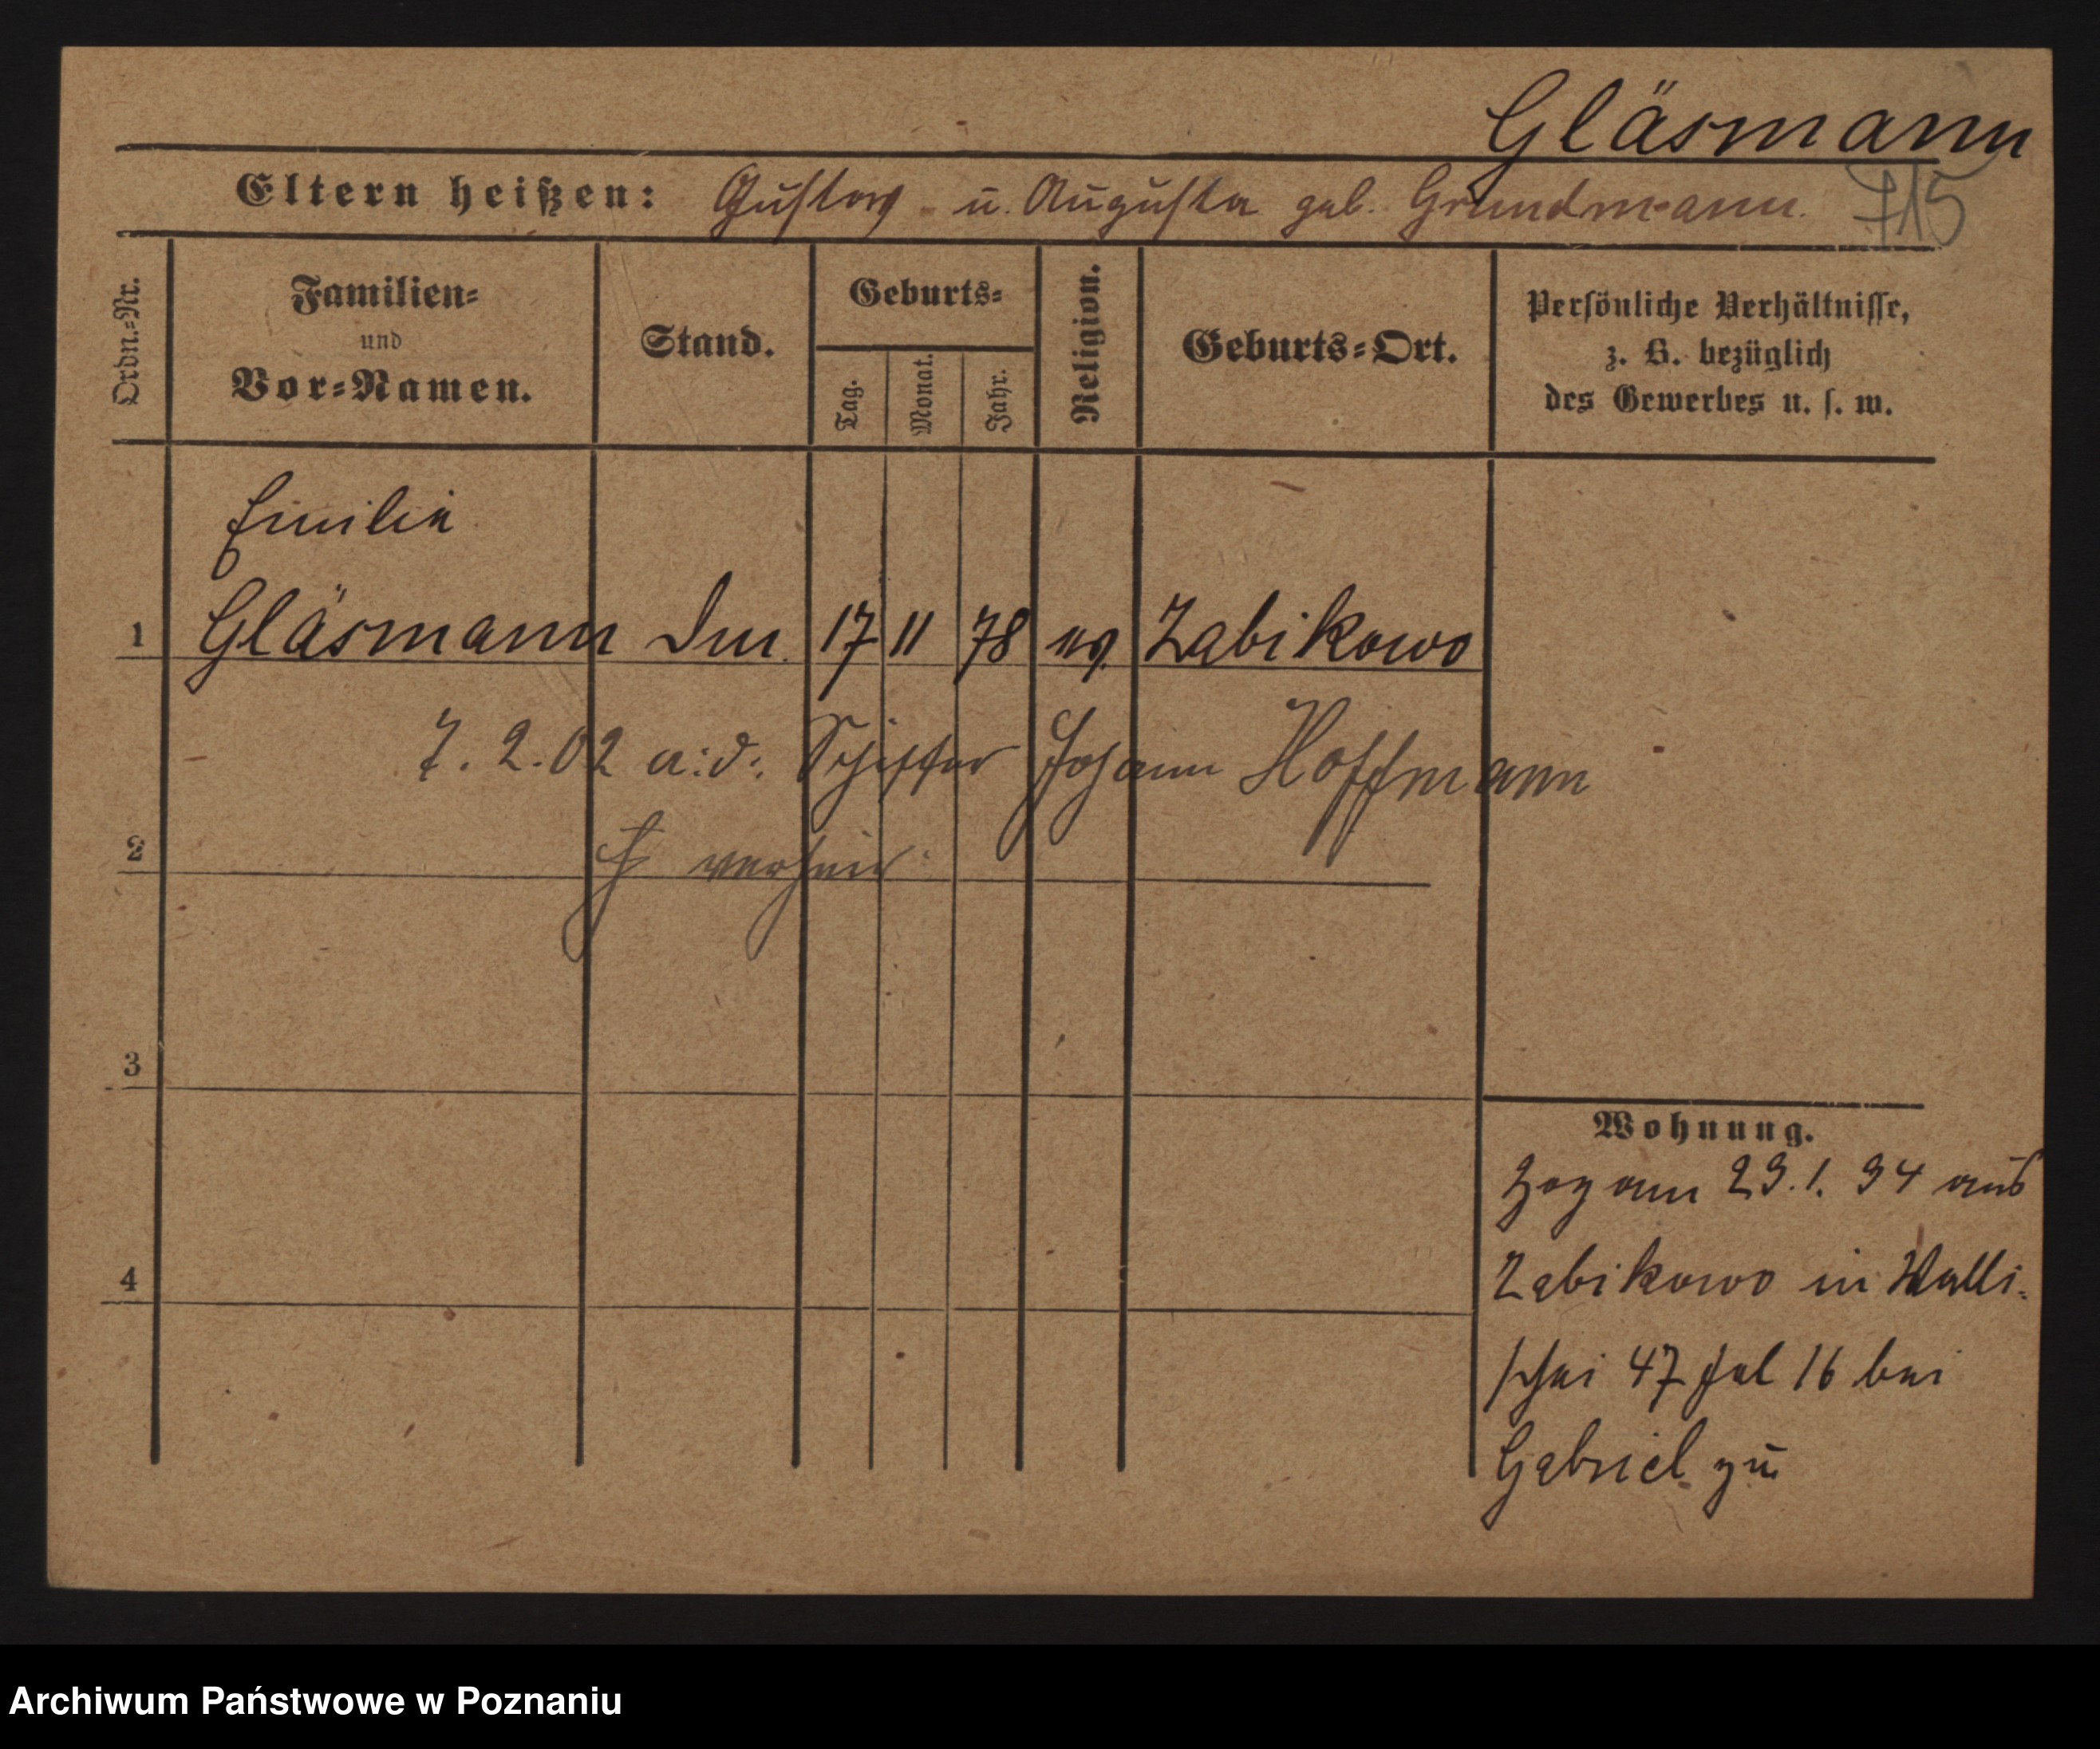 Gläsmann
Eltern heißen: Gustav u. Augusta geb. Grundmann.
715
Ordn.=Nr.
Familien=
und
Vor=Namen.
Stand.
Geburts=
Tag.
Monat.
Jahr.
Religion.
Geburts=Ort.
Persönliche Verhältnisse,
z. B. bezüglich
des Gewerbes u. s. w.
Emilie
1 Gläsmann 17 11 78 ev. Zabikowo
7. 2. 02 a. d. Johann Hoffmann
2 verheir.
3
4
Wohnung.
Zog am 29. 1. 94 aus
Zabikowo in Walli=
schei 47 16 bei
Gabriel zu
Archiwum Państwowe w Poznaniu